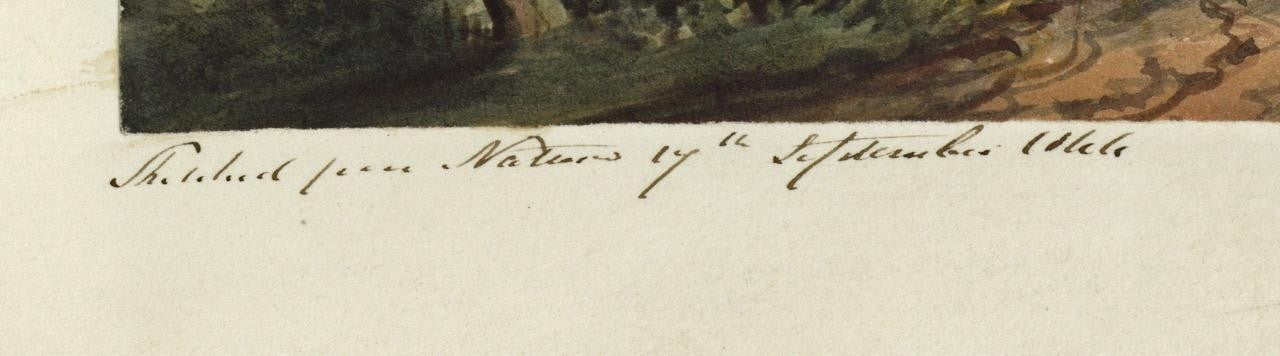 Sketched from Nature 17th September 1844